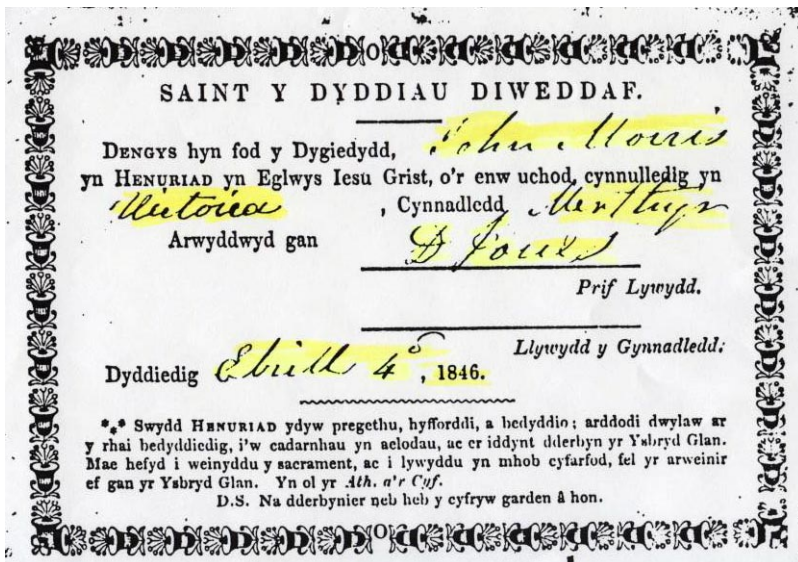 SAINT Y DYDDIAU DIWEDDAF.
DENGYS hyn fod y Dygiedydd, John Morris
yn HENURIAD yn Eglwys Iesu Grist, o'r enw uchod, cynnulledig yn
Victoria, Cynnadledd Merthyr
Arwyddwyd gan D Jones
Prif Lywydd.
Llywydd y Gynnadledd:
Dyddiedig Ebrill 4º, 1846.
*** Swydd HENURIAD ydyw pregethu, hyfforddi, a bedyddio; arddodi dwylaw ar
y rhai bedyddiedig, i'w cadarnhau yn aelodau, ac er iddynt dderbyn yr Ysbryd Glan.
Mae hefyd i weinyddu y sacrament, ac i lywyddu yn mhob cyfarfod, fel yr arweinir
ef gan yr Ysbryd Glan. Yn ol yr Ath. a'r Cyf.
D.S. Na dderbynier neb heb y cyfryw garden â hon.